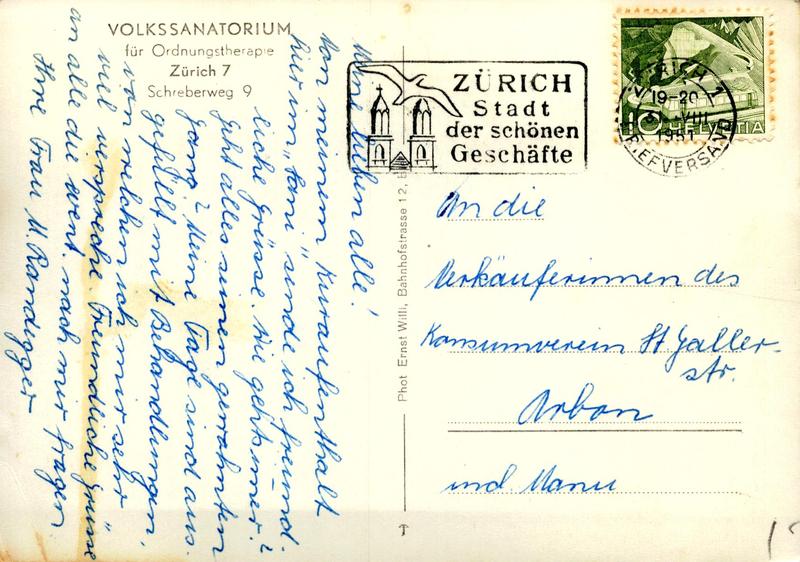 VOLKSSANATORIUM
für Ordnungstherapie
Zürich 7
Schreberweg 9
Meine lieben alle!
Von meinem Kuraufenthalt
hier im „Sani" sende ich freund-
liche Grüsse. Wie geht's immer?
Geht alles seinen gewohnten
Gang? Meine Tage sind aus-
gefüllt mit Behandlungen,
von welchen ich mir sehr
viel verspreche. Freundliche Grüsse
an alle die event. nach mir fragen
Ihre Frau M.
Phot Ernst Willi, Bahnhofstrasse 12,
ZÜRICH
Stadt
der schönen
Geschäfte
ZÜRICH 1
19-20
VIII
1951
BRIEFVERSAND
10 HELVETIA
An die
Verkäuferinnen des
Konsumverein St Galler-
str.
Arbon
und Manu